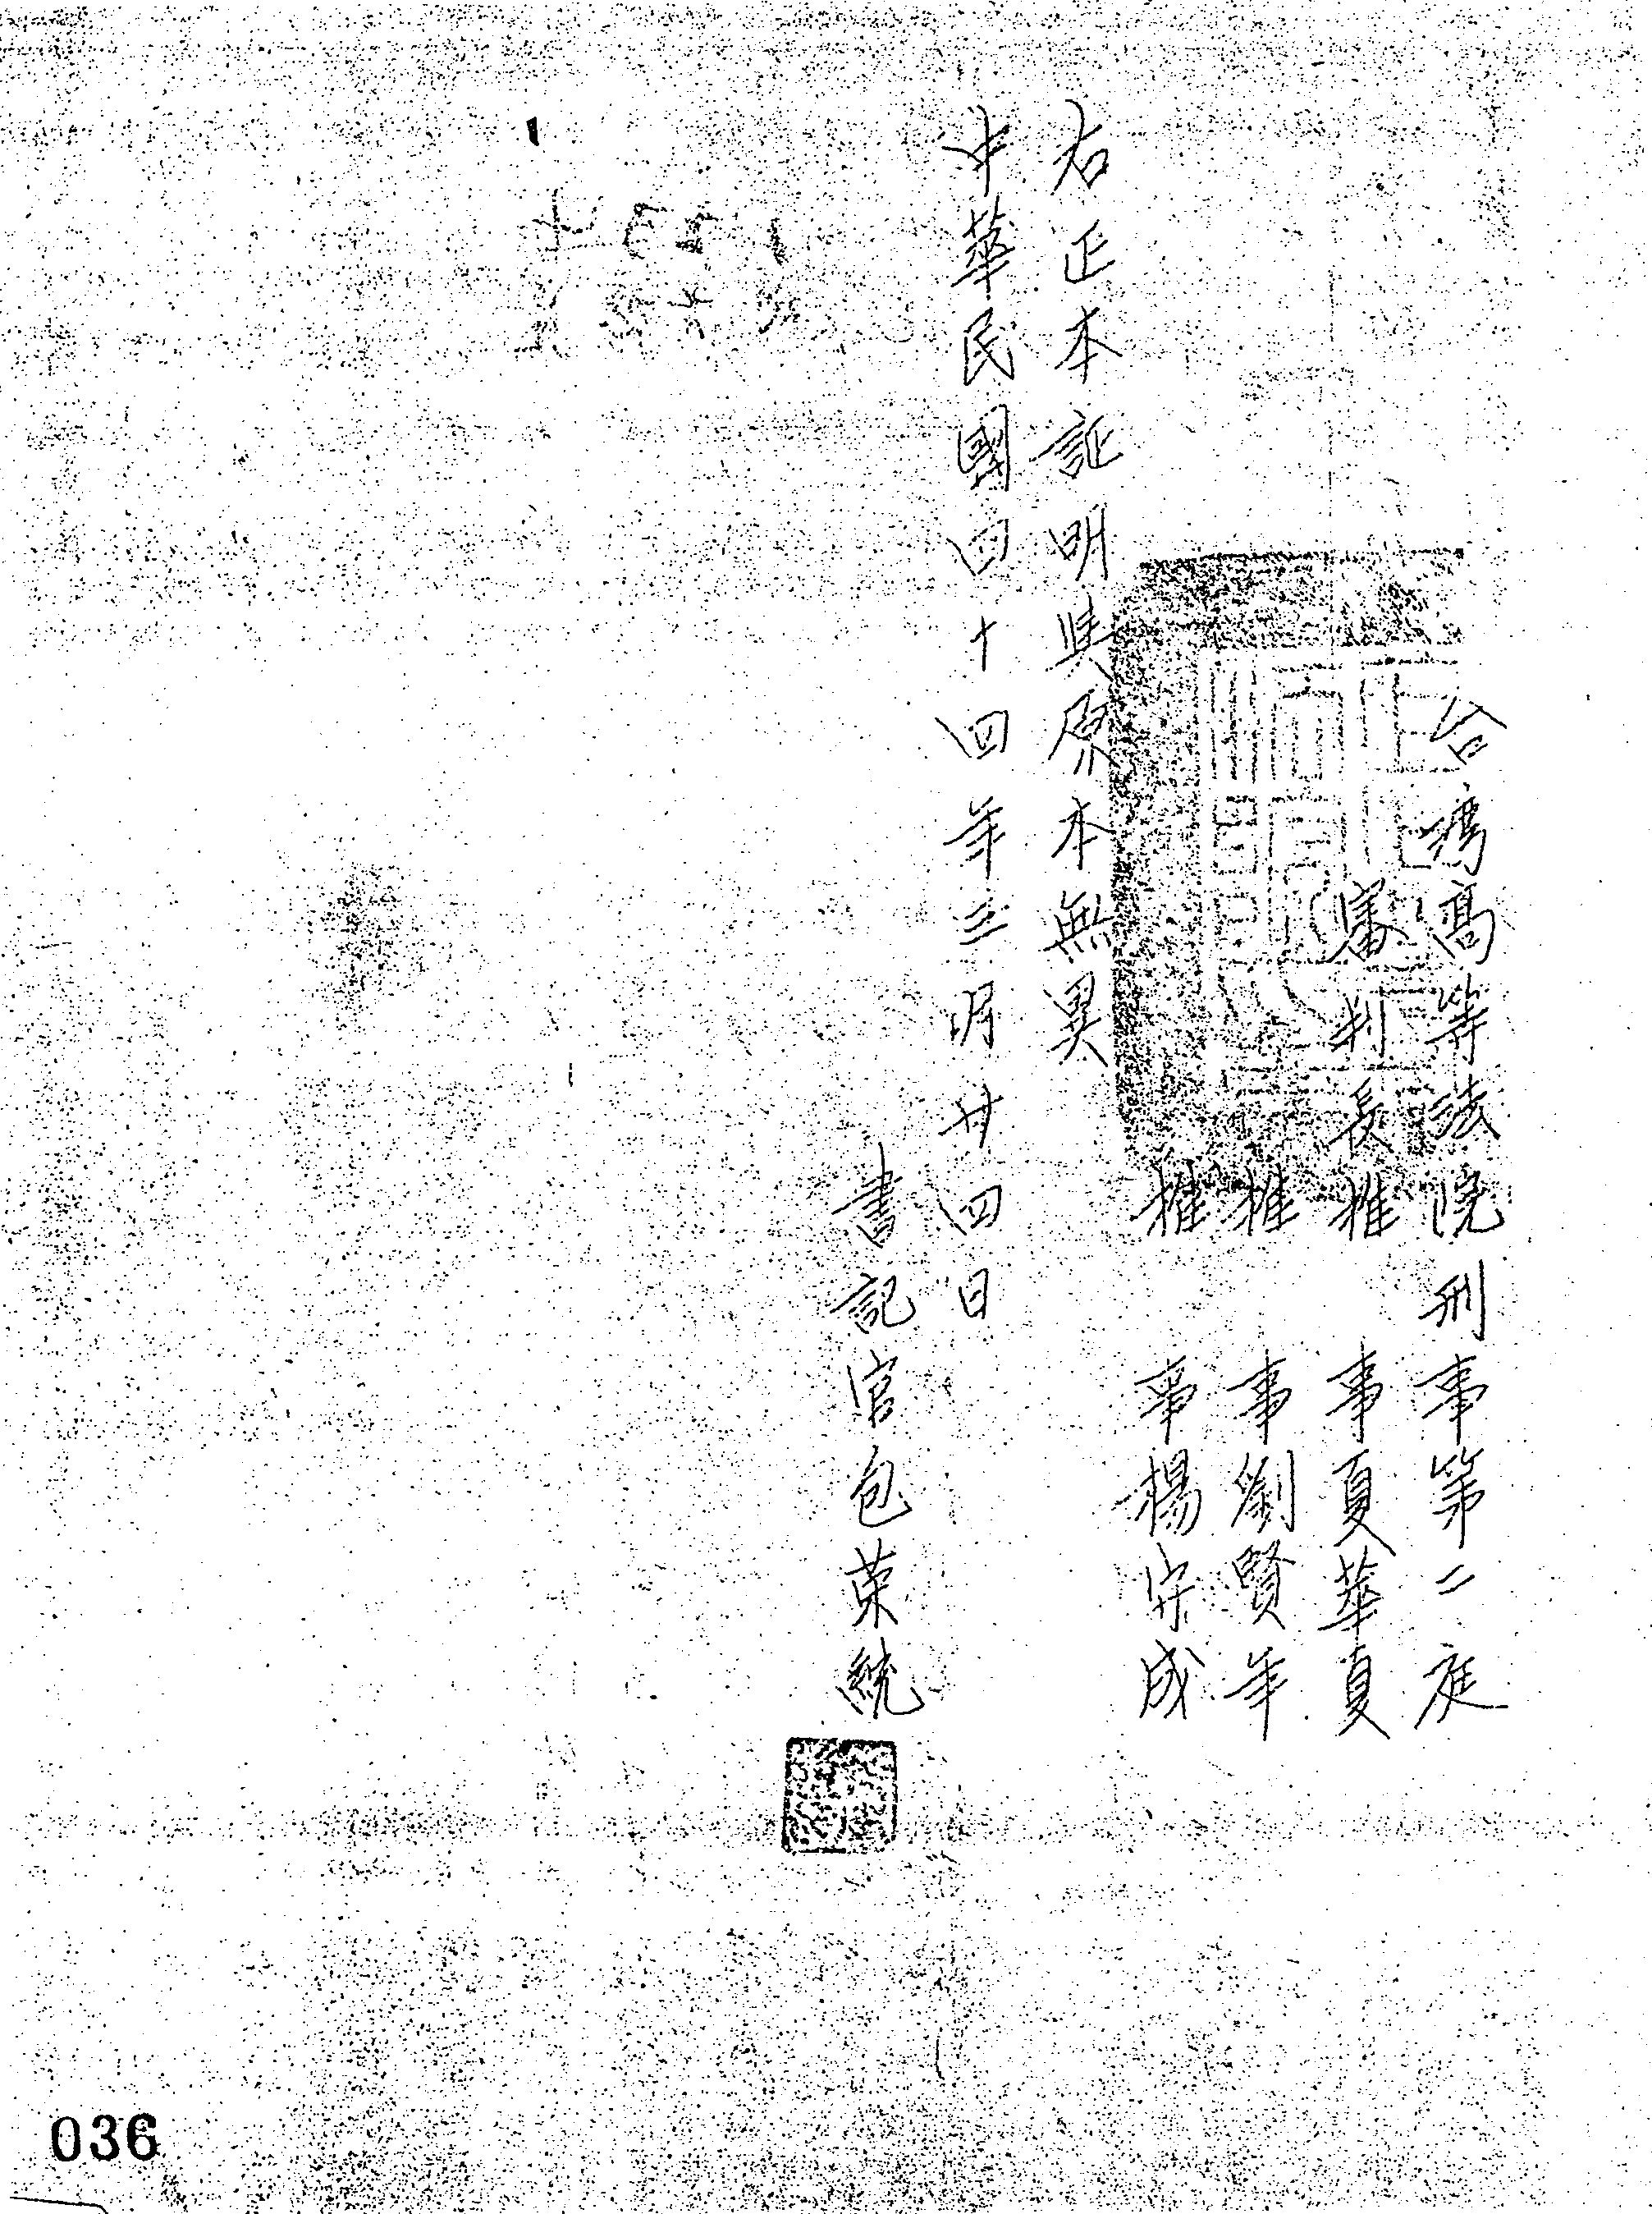 台灣高等法院刑事第二庭
審判長推事夏華夏
推事劉賢年
推事楊守成
右正本証明與原本無異
中華民國四十四年三月廿四日
書記官包荣統
036